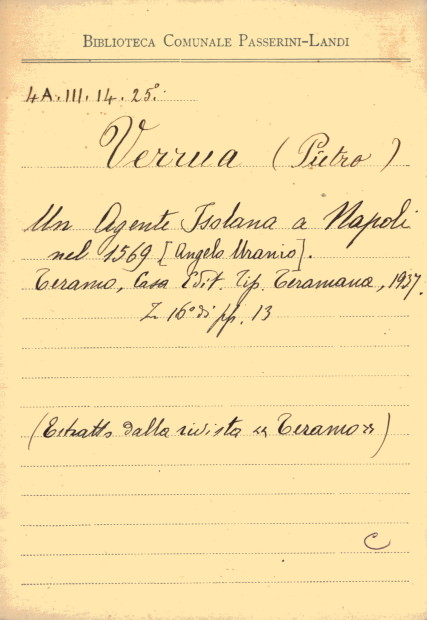 BIBLIOTECA COMUNALE PASSERINI-LANDI
4A. III. 14. 25°.
Verrua (Pietro)
Un Agente Isolana a Napoli
nel 1569 [Angelo Uranio].
Teramo, Casa Edit. Tip. Teramana, 1937.
16° di pp. 13
(Estratto dalla rivista « Teramo »)
C